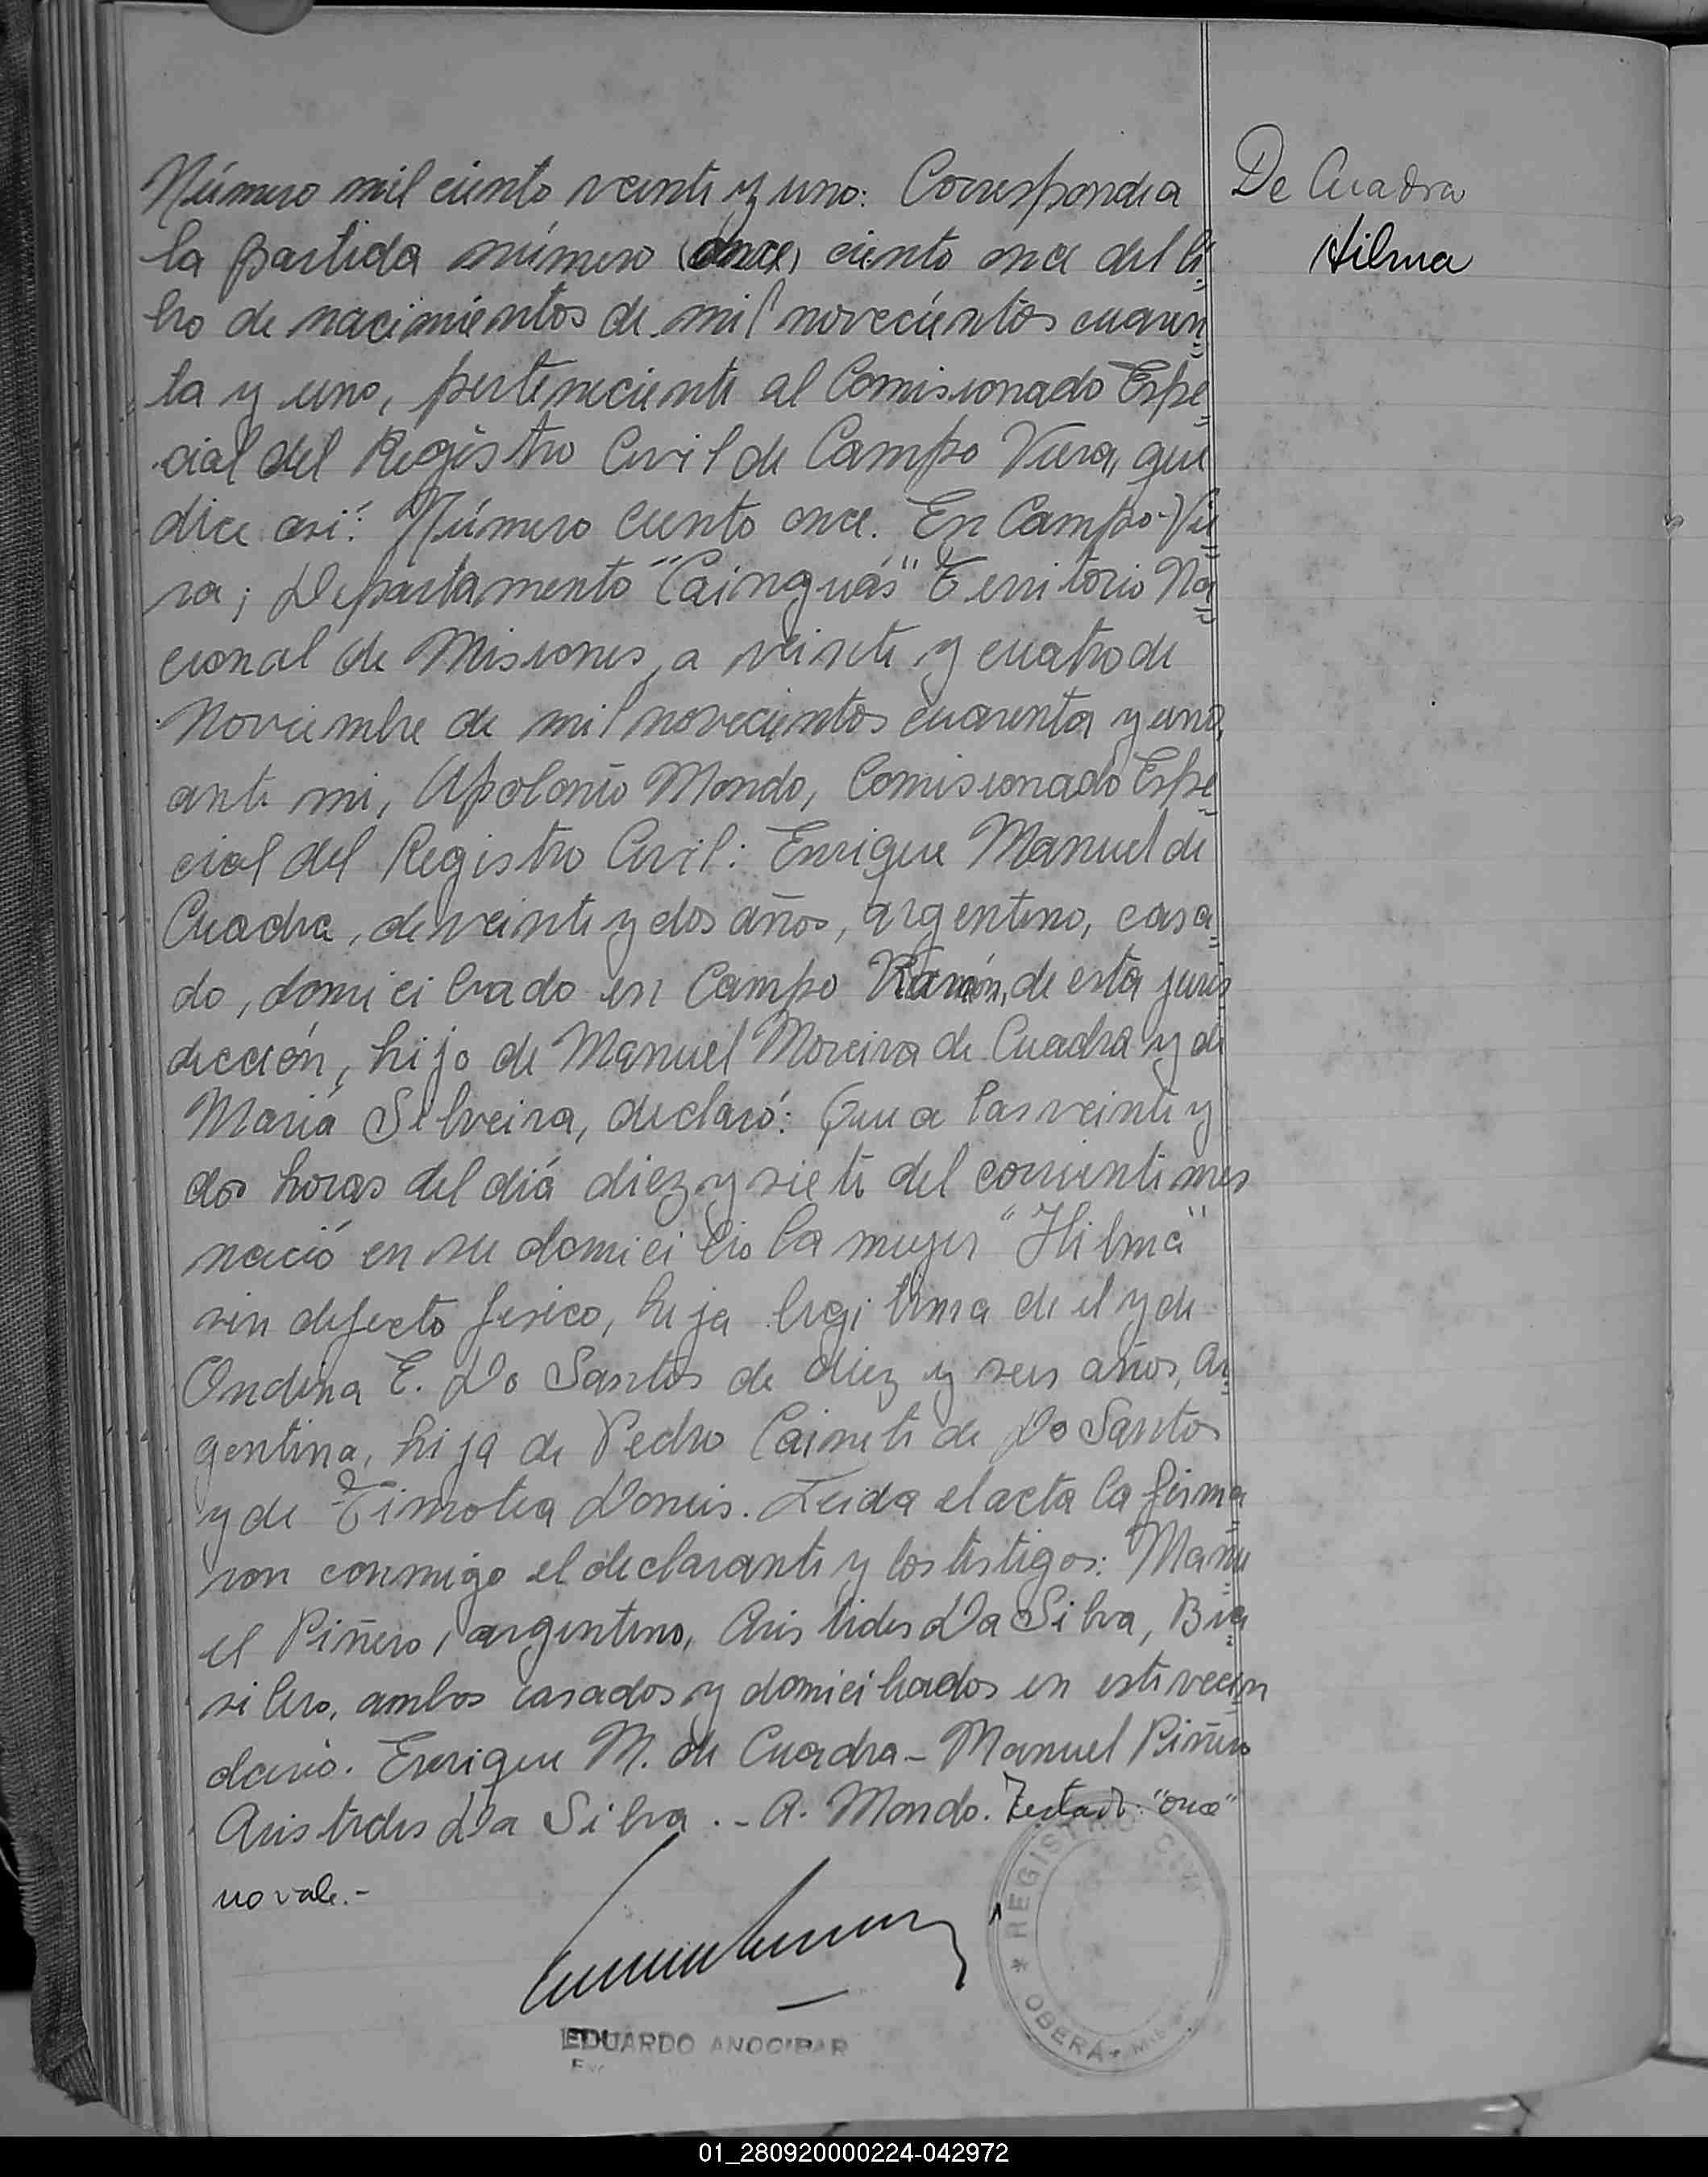 Número mil ciento veinte y uno: Corresponde a
la partida número (once) ciento once del li=
bro de nacimientos de mil novecientos cuaren=
ta y uno, perteneciente al Comisionado Espe=
cial del Registro Civil de Campo Viera, que
dice asi: Número ciento once. En Campo-Vie=
ra; Departamento "Cainguás" Territorio Na=
cional de Misiones, a veinte y cuatro de
Noviembre de mil novecientos cuarenta y uno,
ante mi, Apolonio Mondo, Comisionado Espe=
cial del Registro Civil: Enrique Manuel de
Cuadra, de veinte y dos años, argentino, casa=
do, domiciliado en Campo Ramón, de esta juris
dicción, hijo de Manuel Moreira de Cuadra y de
María Silveira, declaró: Que a las veinte y
dos horas del día diez y siete del corriente mes
nació en su domicilio la mujer "Hilma"
sin defecto fisico, hija legitima de el y de
Ondina E. Do Santos de diez y seis años, ar=
gentina, hija de Pedro de Do Santos
y de Timotea. Leida el acta la firma=
ron conmigo el declarante y los testigos: Manu=
el Piñero, argentino, Aristides Da Silva, Bra=
silero, ambos casados y domiciliados en este vecin=
dario. Enrique M. de Cuadra - Manuel Piñero
Aristides Da Silva .- A. Mondo. Testado: "once"
no vale.-
De Cuadra
Hilma
EDUARDO ANOCIBAR
* REGISTRO CIVIL
* OBERÁ
01_280920000224-042972